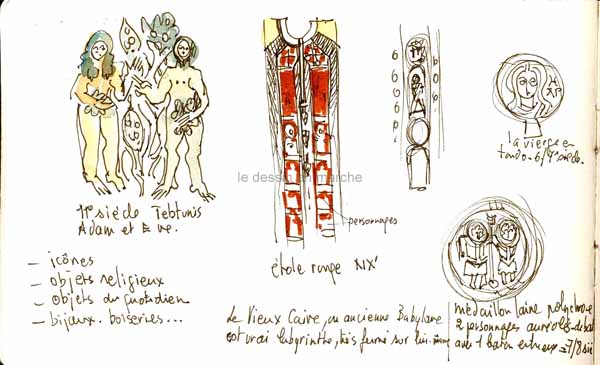 11e siècle Tebtunis
Adam et Eve.
- icônes
- objets religieux
- objets du quotidien
- bijoux. boiseries...
le dessin en marche
personnages
étole rouge XIX
la vierge en
tondo. 6/7e siècle.
Le Vieux Caire, ou ancienne Babylone
est vrai labyrinthe, très fermé sur lui-même
médaillon laine polychrome
2 personnages auréolés debout
avec 1 baton entre eux 7/8 siè